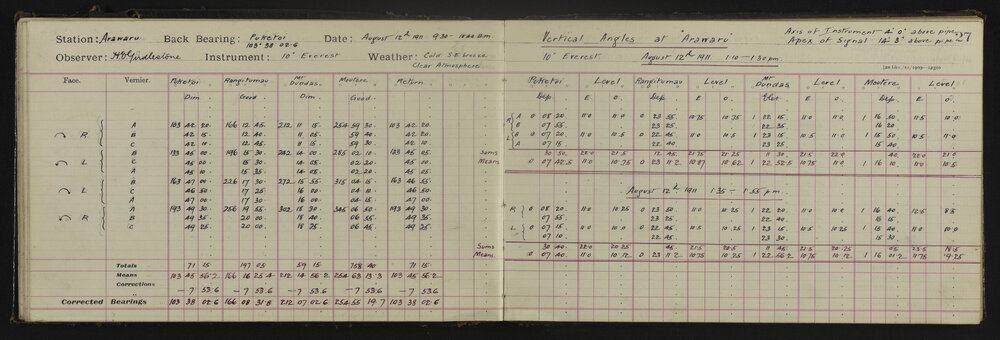 Station: Arawaru Back Bearing: Puketoi 103° 38 02.6 Date: August 12th 1911 9.30 -
Observer: Instrument: 10" Everest Weather: Cold S.E. breeze
Clear Atmosphere
Face. Vernier. Puketoi Rangitumau Mt Dundas Moutere Return
Dim Good Dim Good
R A 103 42 20 166 12 45 212 11 15 254 59 30 103 42 20
B 42 15 12 40 11 05 59 40 42 20
C 42 10 12 45 11 15 59 30 42 10
L B 133 45 00 196 15 30 242 14 00 285 02 10 133 45 05
C 45 00 15 30 14 05 02 20 45 00
A 45 10 15 35 14 05 02 20 45 05
L B 163 47 00 226 17 30 272 15 55 315 04 15 163 46 55
C 46 50 17 25 16 00 04 10 46 50
A 47 00 17 30 16 00 04 15 47 00
R A 193 49 30 256 19 55 302 18 30 345 06 50 193 49 30
B 49 35 20 00 18 40 06 55 49 35
C 49 25 20 00 18 25 06 45 49 25
Totals 71 15 197 05 59 15 71 15
Means 103 45 56.2 166 16 25.4 212 14 56.2 254 63 13.3 103 45 56.2
Corrections
— 7 53.6 — 7 53.6 — 7 53.6 — 7 53.6 — 7 53.6
Corrected Bearings 103 38 02.6 166 08 31.8 212 07 02.6 254 55 19.7 103 38 02.6
Vertical Angles at "Arawaru" Axis of Instrument 4' 0" above pipe
Apex of Signal 14' 3" above pipe 27
10" Everest August 12th 1911 1.10 — 1.30 pm
Puketoi Level Rangitumau Level Mt Dundas Level Moutere Level
Dep E. O. Dep E. O. Elev E. O. Dep E. O.
R A 0 08 20 11.0 11.0 0 23 55 10.75 10.75 1 22 25 11.0 11.0 1 16 50 11.5 11.0
B 07 55 23 25 22 35 16 20
L B 0 07 20 11.0 10.5 0 22 45 11.0 10.5 1 23 15 10.5 11.0 1 15 50 10.5
A 07 15 22 40 23 15 15 40
Sums 30 50 22.0 21.5 12 45 21.75 21.25 11 30 21.5 22.0 40 22.0
Means 0 07 42.5 11.0 10.75 0 23 11.2 10.87 10.62 1 22 52.5 10.75 11.0 1 16 10 11.0 10.5
August 12th 1911 1.35 — 1.55 pm
R 0 08 20 11.0 10.25 0 23 50 11.0 10.25 1 22 20 11.0 1 16 40 12.5 8.5
07 55 23 25 22 40
L 0 07 15 11.0 10.0 0 22 45 10.5 1 23 15 10.5 1 15 40 11.0
07 10 22 45 23 30 15 30
Sums 30 40 22.0 20.25 45 21.5 20.5 11 45 21.5 20.25 05 23.5 18.5
Means 0 07 40 11.0 10.12 0 23 11.2 10.75 10.25 1 22 56.2 10.75 10.12 1 16 01.2 11.75 9.25